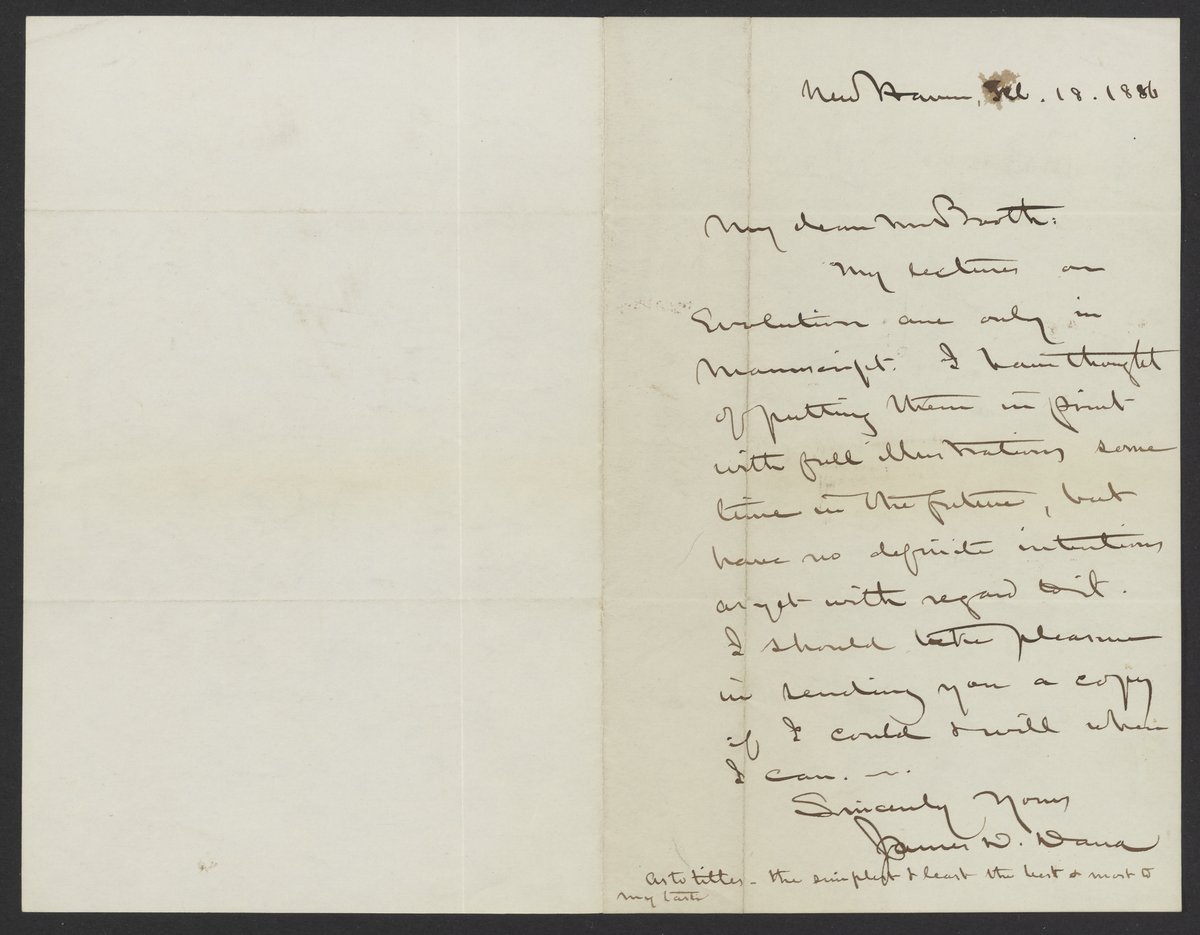 New Haven, Feb. 18. 1886
My dear Mr Booth:
My lectures on
Evolution are only in
Manuscript. I have thought
of putting them in print
with full illustrations some
time in the future, but
have no definite intentions
as yet with regard to it.
I should take pleasure
in sending you a copy
if I could & will when
I can. —
Sincerely Yours
James D. Dana
As to titles - the simplest & least the best & most to
my taste